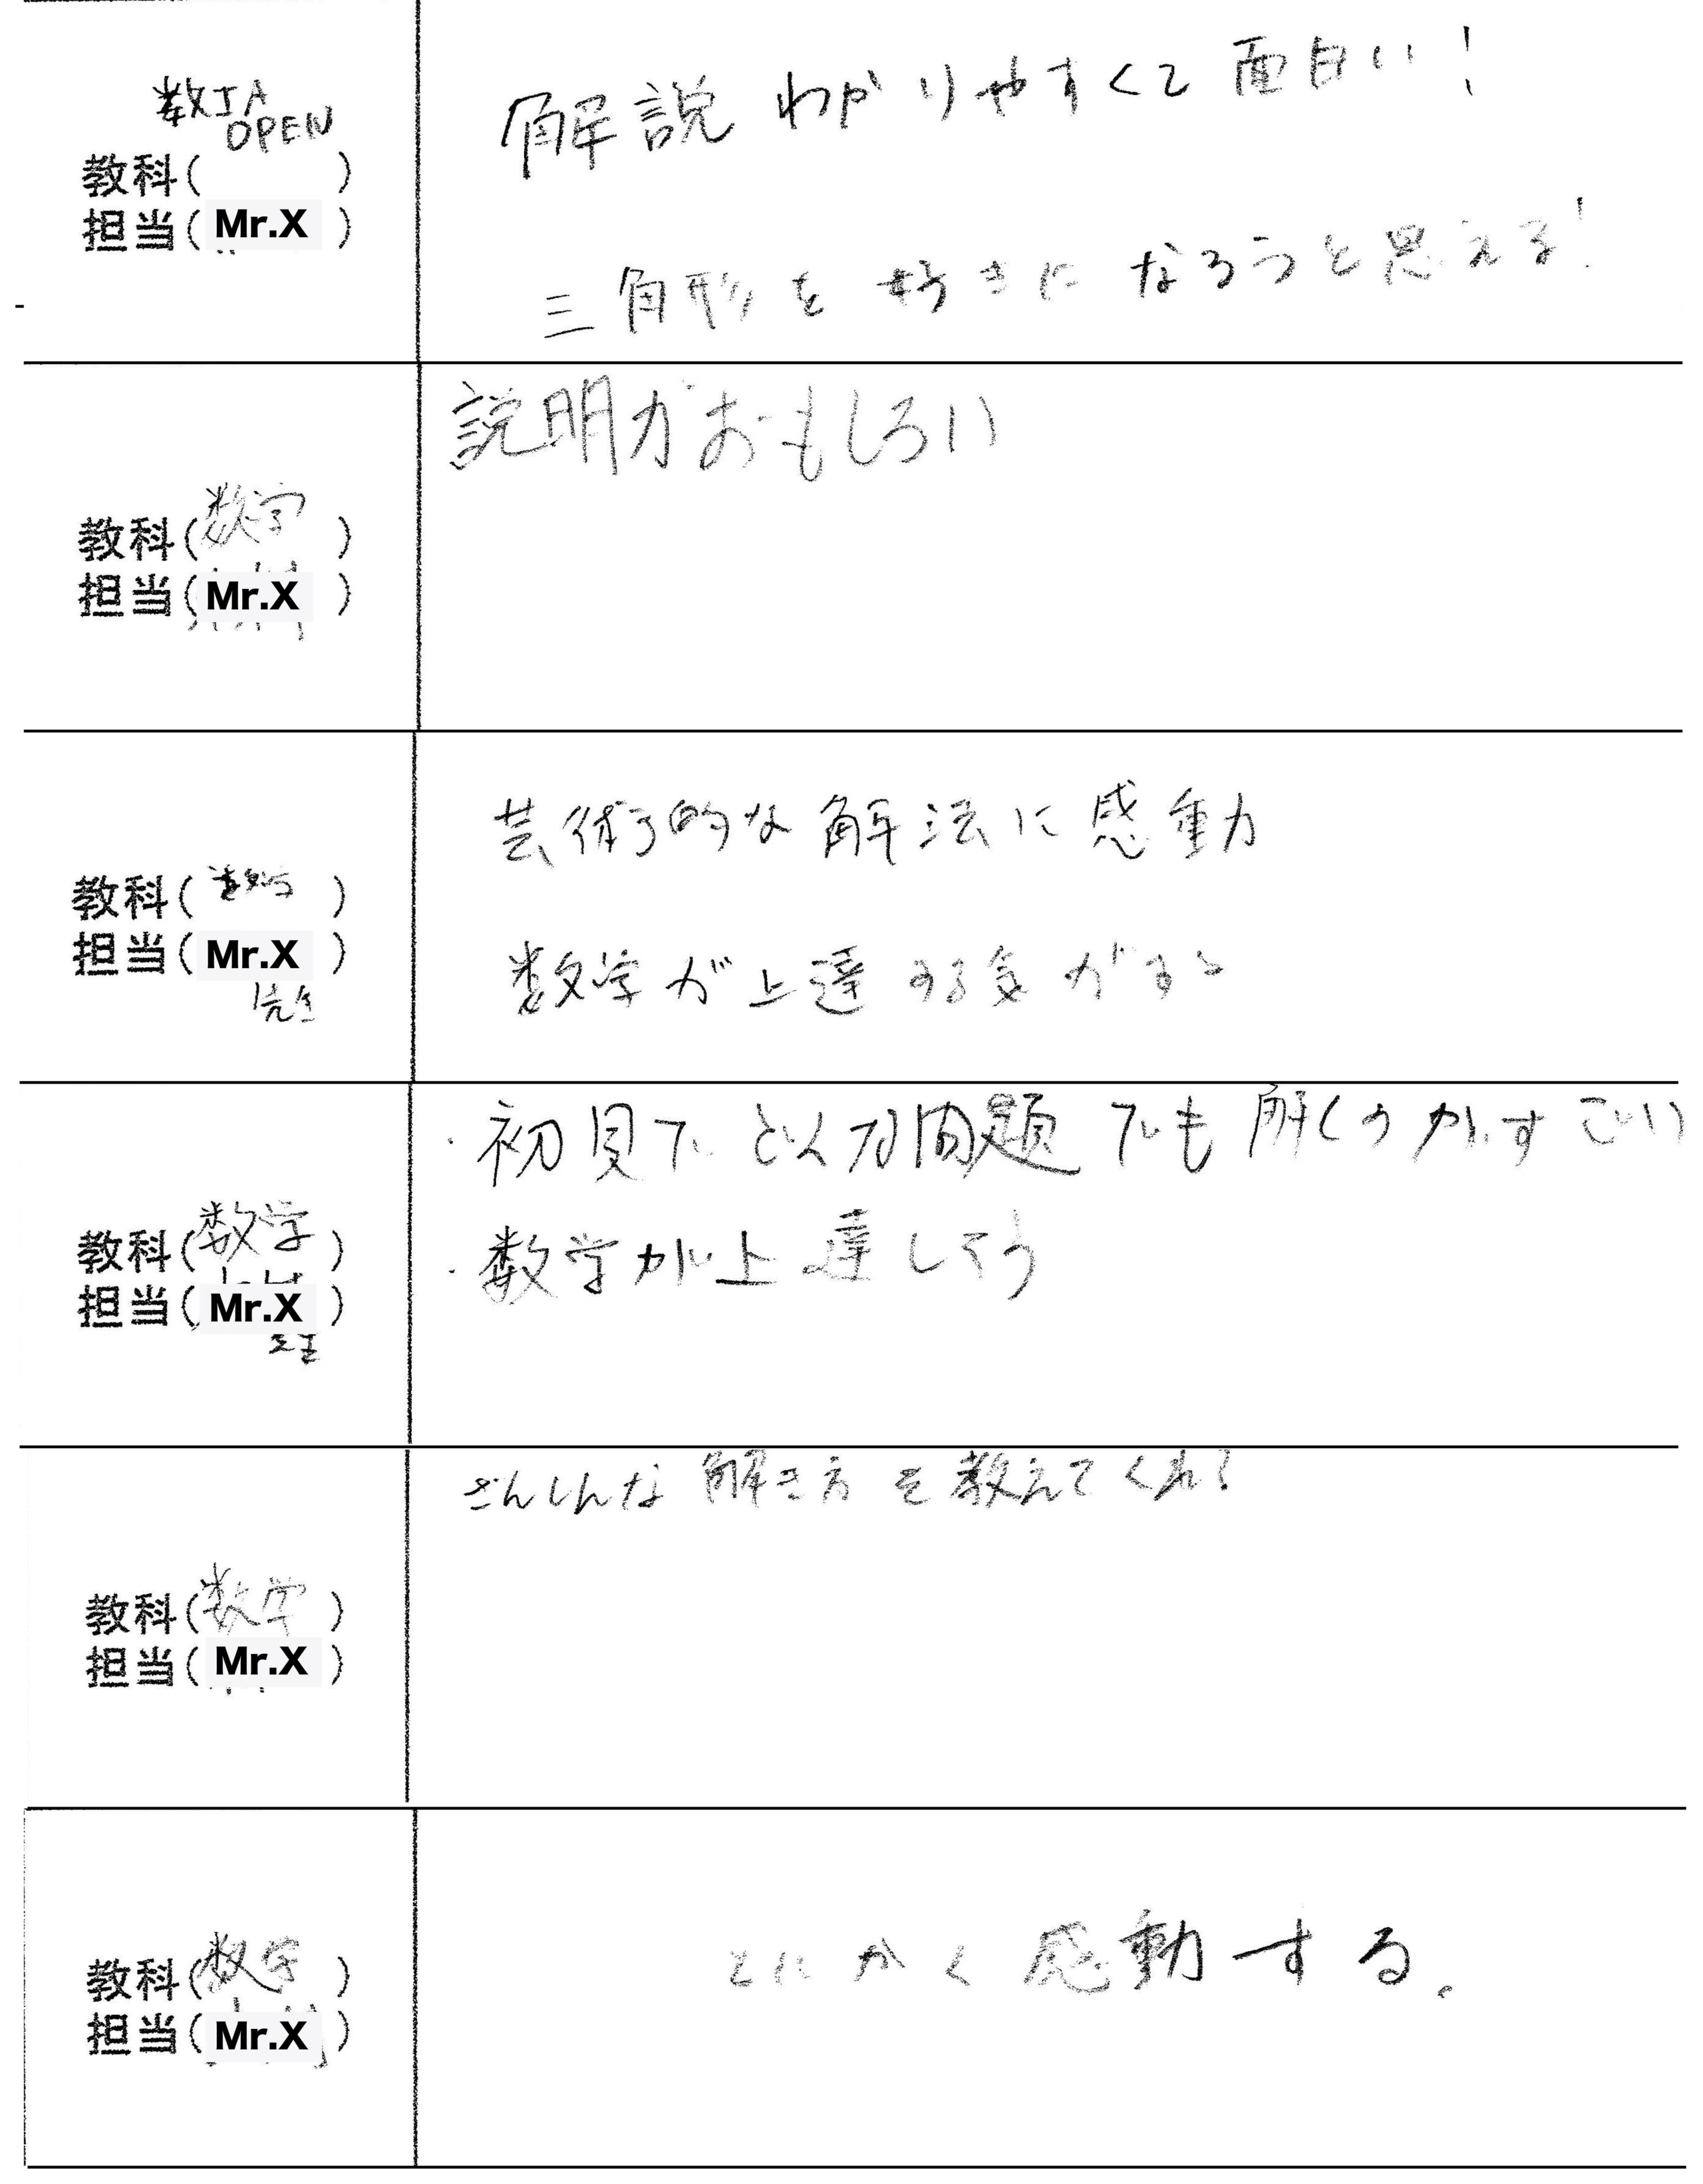 数IA
OPEN
教科( )
担当( Mr.X )
解説 わかりやすくて 面白い!
三角形を 好きに なろうと思える!
教科(数学)
担当(Mr.X)
説明がおもしろい
教科(数学)
担当(Mr.X)
先生
芸術的な解法に感動
数学が上達する気がする
教科(数学)
担当(Mr.X)
先生
・初見で どんな問題でも 解くのがすごい
・数学が上達しそう
教科(数学)
担当(Mr.X)
ざんしんな 解き方を教えてくれる
教科(数学)
担当(Mr.X)
とにかく感動する。